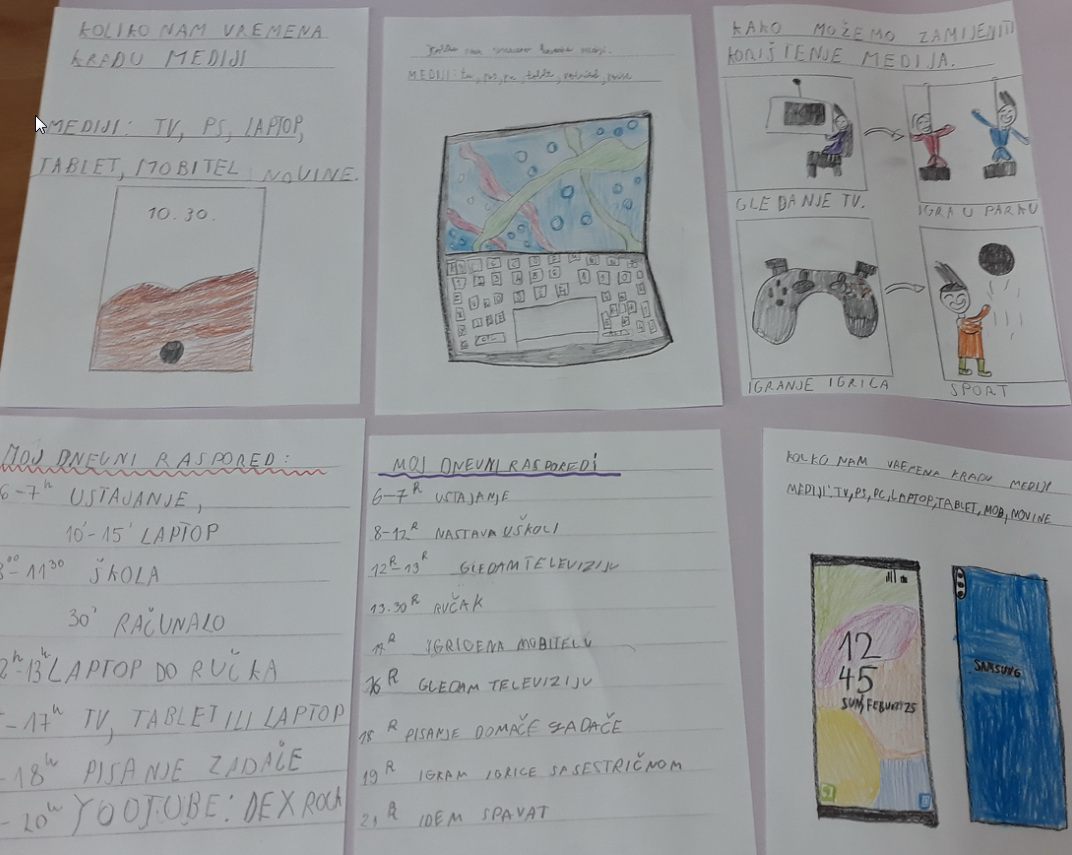 KOLIKO NAM VREMENA
KRADU MEDIJI
MEDIJI: TV, PS, LAPTOP,
TABLET, MOBITEL NOVINE.
10.30.
nam
MEDIJI: tv, ps, pc,
KAKO MOŽEMO ZAMIJENITI
KORIŠTENJE MEDIJA.
GLEDANJE TV.
IGRA U PARKU
IGRANJE IGRICA
SPORT
MOJ DNEVNI RASPORED:
6-7h USTAJANJE,
10'-15' LAPTOP
-11 30 ŠKOLA
30' RAČUNALO
-13h LAPTOP DO RUČKA
-17h TV, TABLET ILI LAPTOP
-18h PISANJE ZADAĆE
-20h YOOTUBE: DEX ROCK
MOJ DNEVNI RASPORED
6-7h USTAJANJE
8-12h NASTAVA U ŠKOLI
12h-13h GLEDAM TELEVIZIJU
13.30h RUČAK
IGRICE NA MOBITELU
16h GLEDAM TELEVIZIJU
18h PISANJE DOMAĆE ZADAĆE
19h IGRAM IGRICE SA SESTRIČNOM
21h IDEM SPAVAT
KOLKO NAM VREMENA KRADU MEDIJI
MEDIJI: TV, PS, PC, LAPTOP, TABLET, MOB, NOVINE
12
45
SUN, 25
SAMSUNG